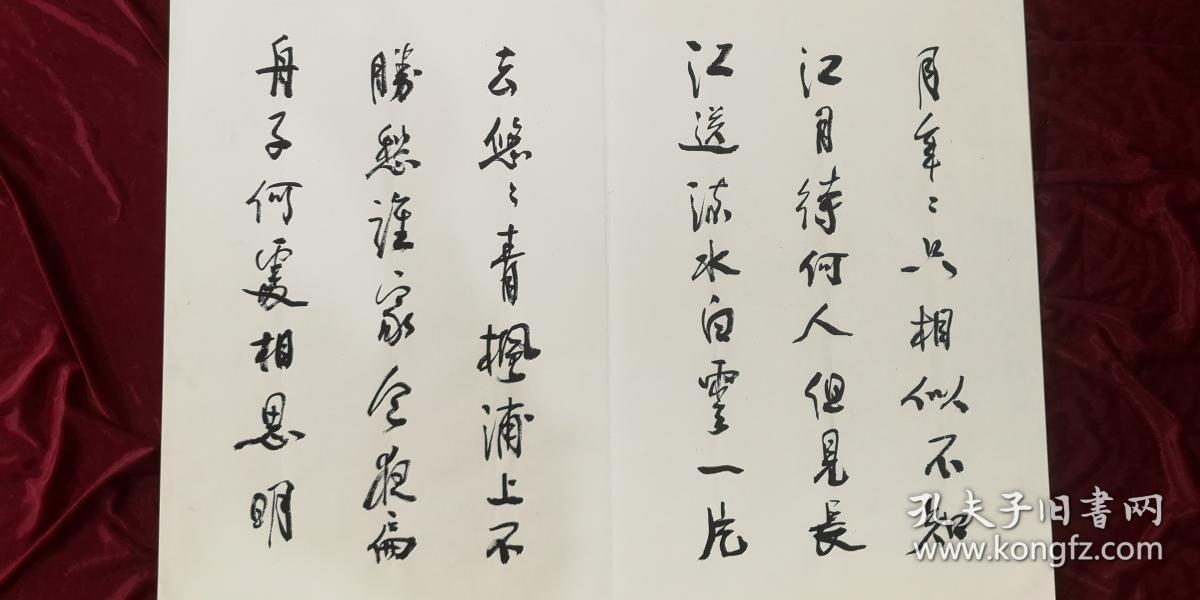 月年〻只相似不知
江月待何人但見長
江送流水白雲一片
去悠〻青楓浦上不
勝愁誰家今夜扁
舟子何處相思明
孔夫子旧书网
www.kongfz.com